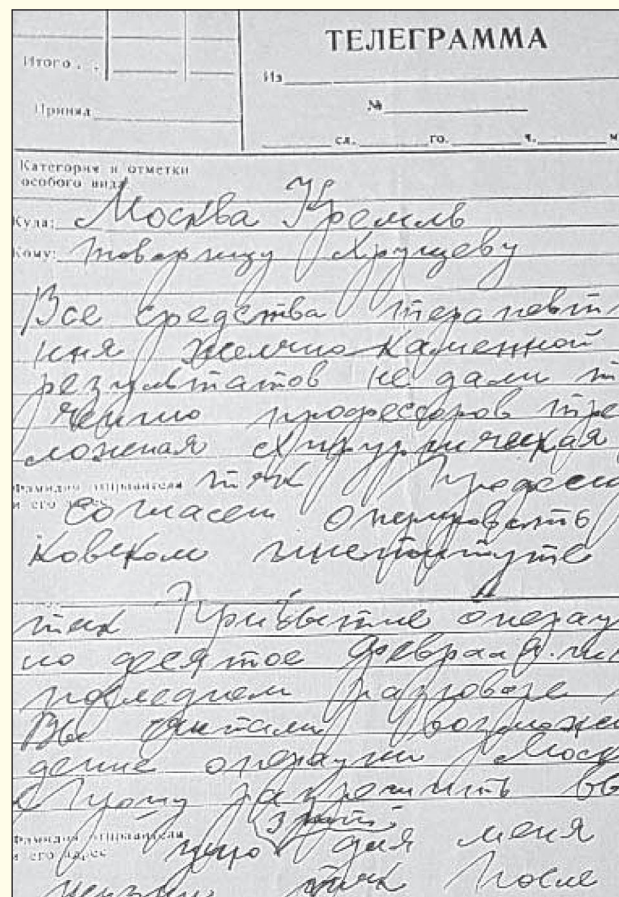 ТЕЛЕГРАММА
Итого
Из
Принял
№
сл. го. ч. м
Категория и отметки
особого вида
Куда: Москва Кремль
Кому: товарищу Хрущеву
Все средства терапевти
ния желчно каменной
результатов не дали т
чению профессоров
ложеная хирургическая
Фамилия отправителя тчк
и его адрес
согласен оперировать
ковском институте
тчк Прибытие операц
но десятое февраля
последнем разговоре
Вы считали возможн
дение операции Моск
Прошу разрешить
Фамилия отправителя
и его адрес
для меня
тчк После